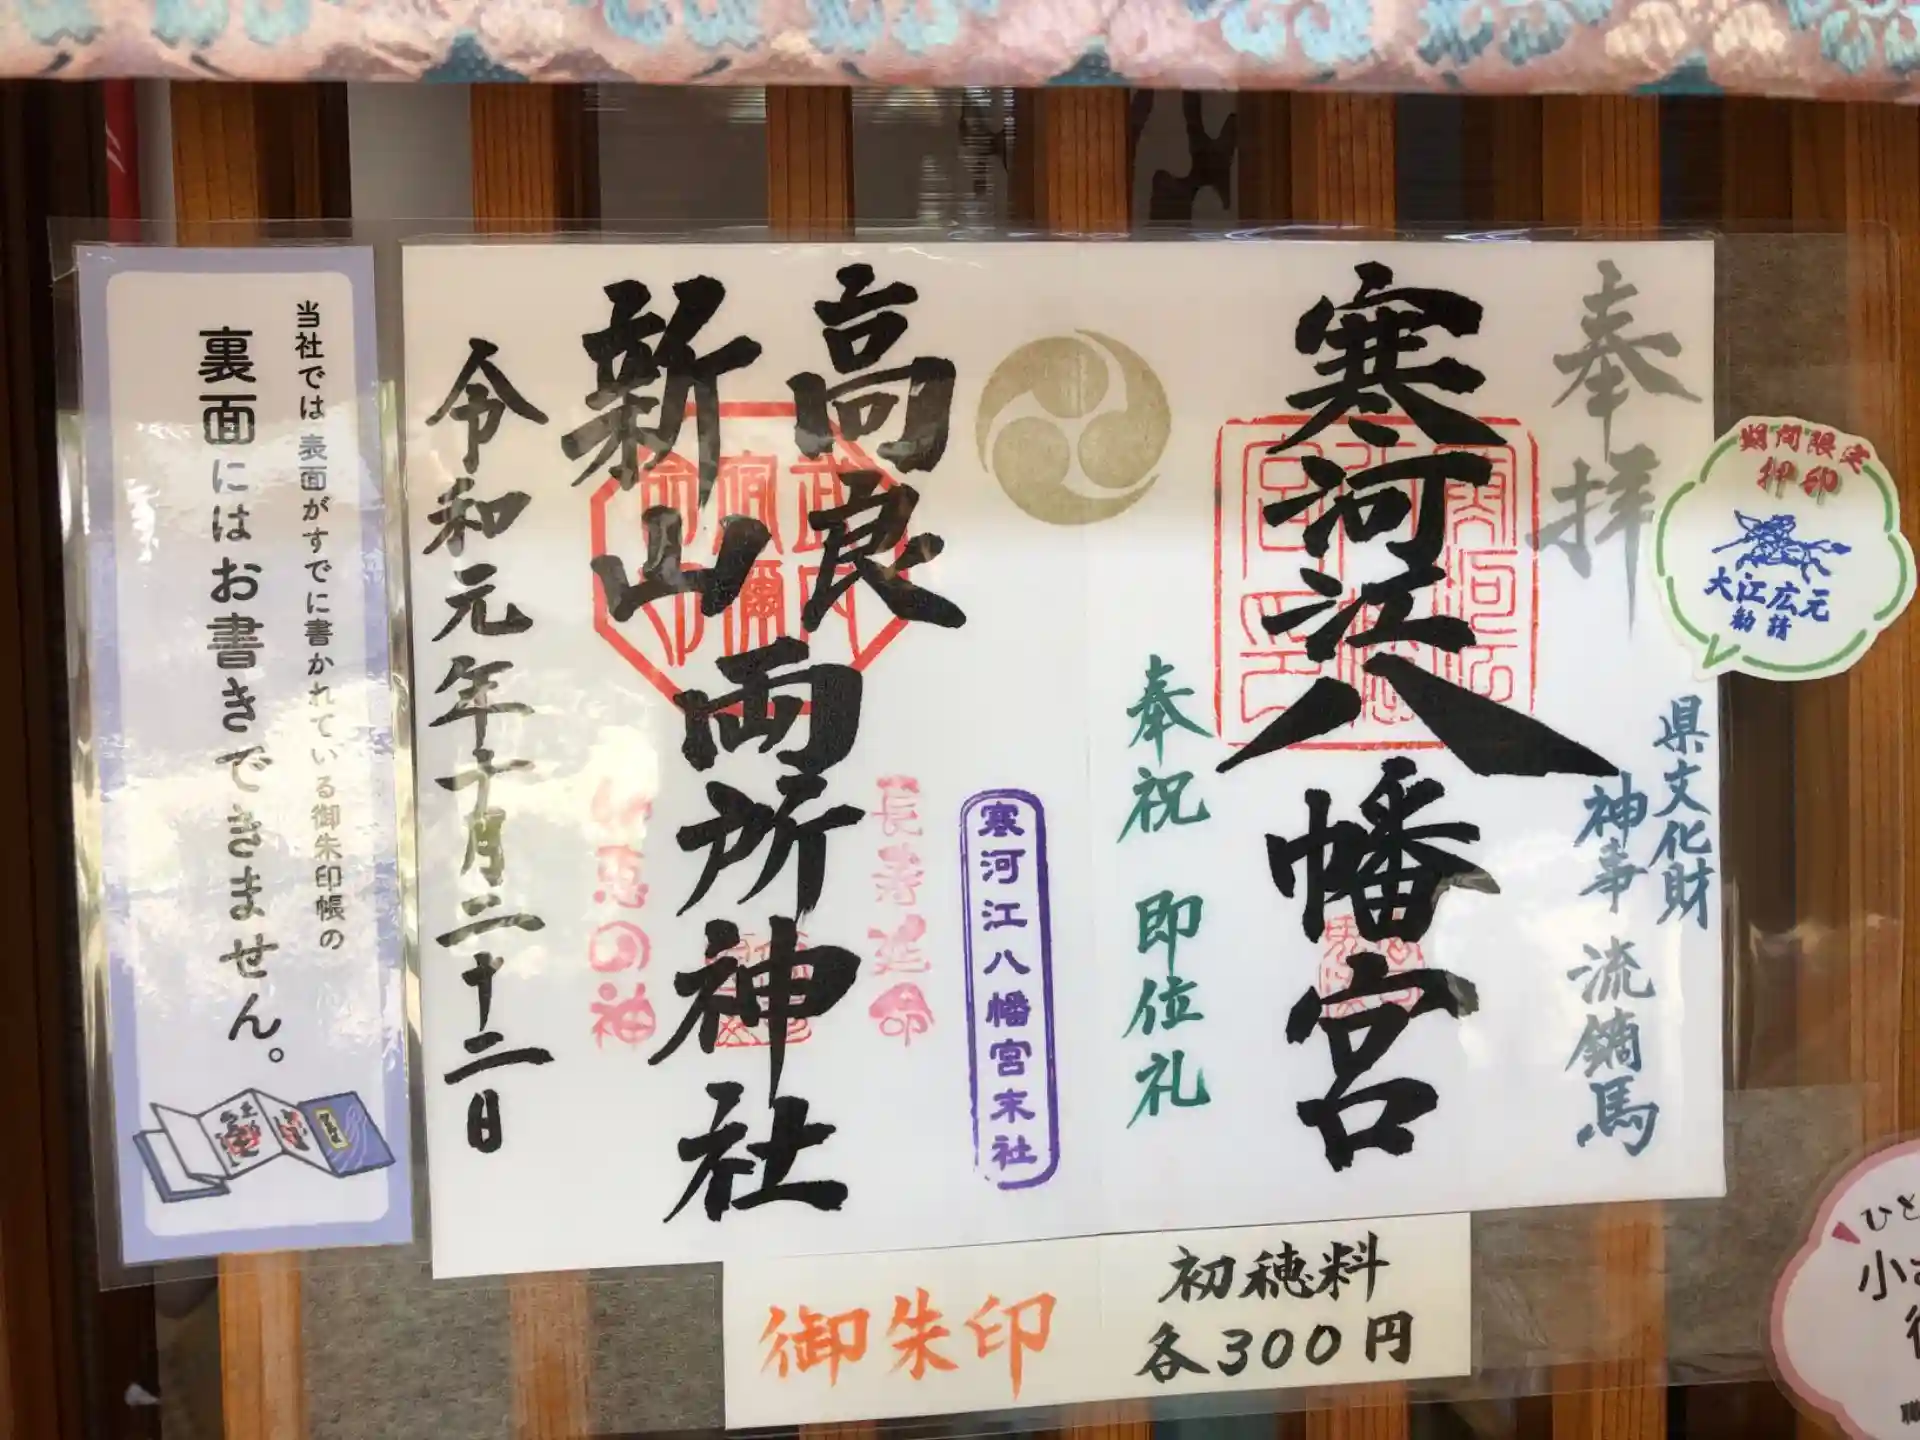 奉拝
県文化財
神事 流鏑馬
寒河江八幡宮
奉祝 即位礼
寒河江八幡宮末社
高良
新山
両所神社
長寿延命
知恵の神
令和元年十月二十二日
期間限定
押印
大江広元
勧請
当社では表面がすでに書かれている御朱印帳の
裏面にはお書きできません。
御朱印
初穂料
各300円